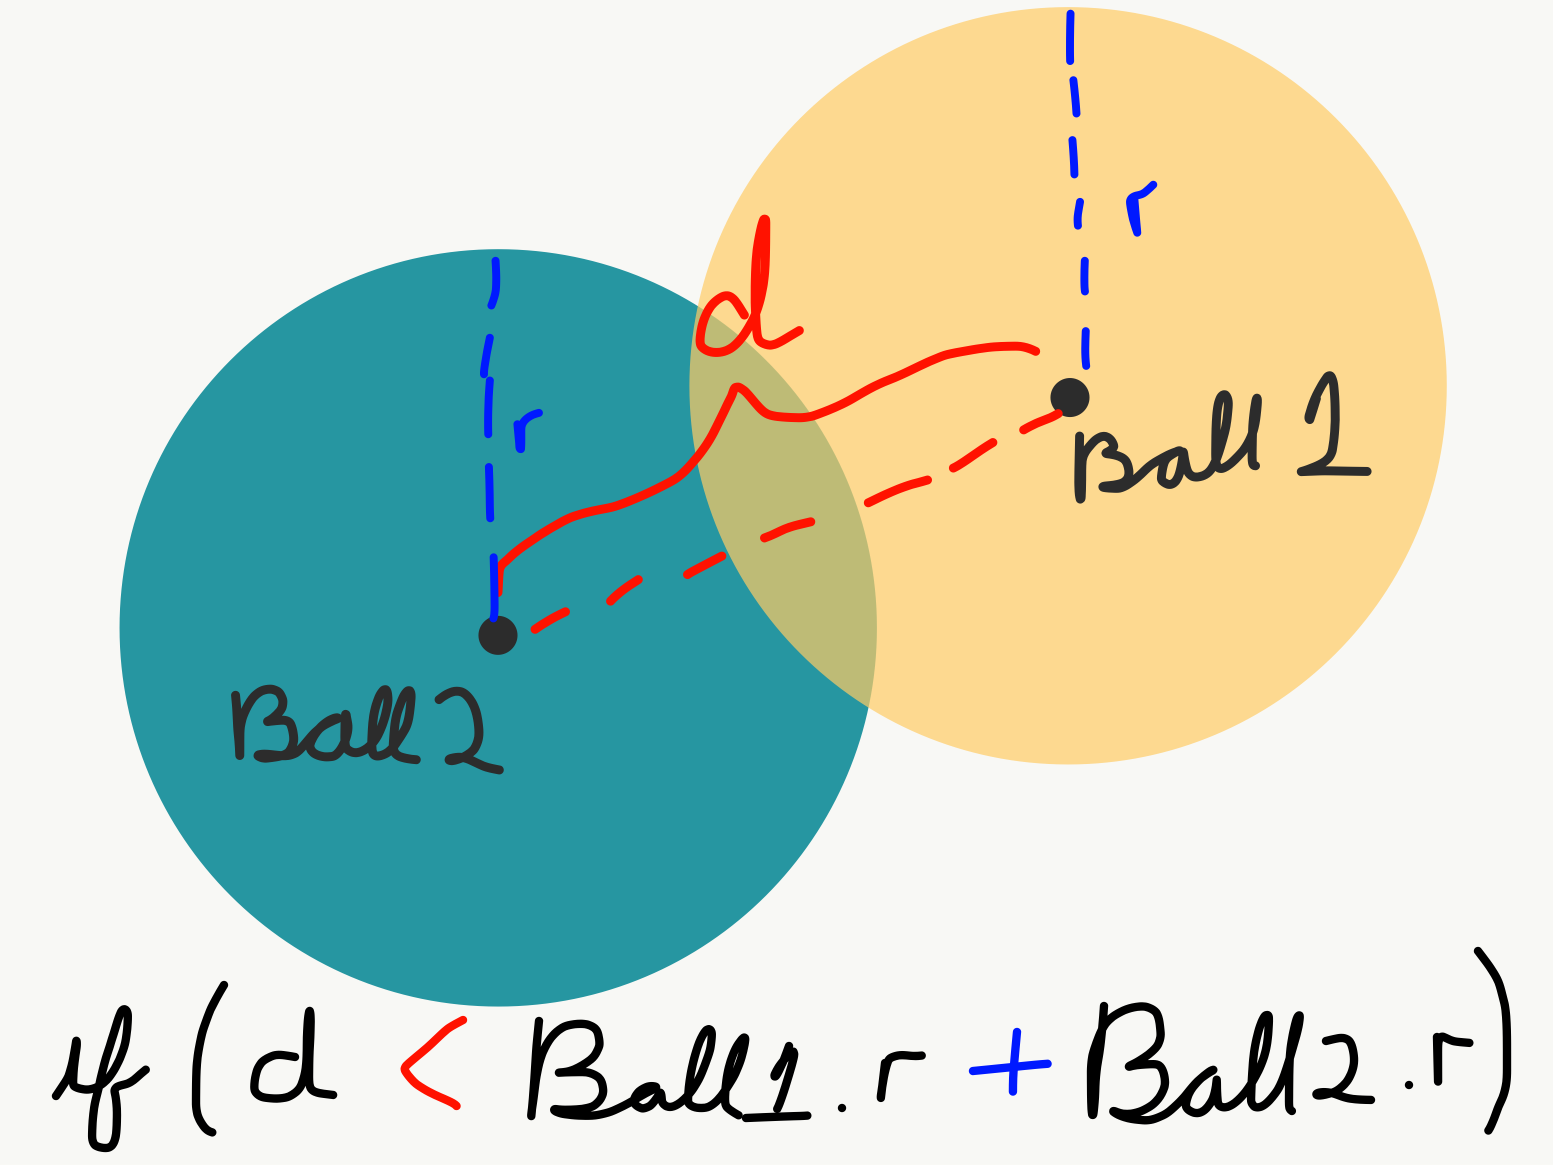 r
d
r
Ball 1
Ball 2
if (d < Ball1.r + Ball2.r)